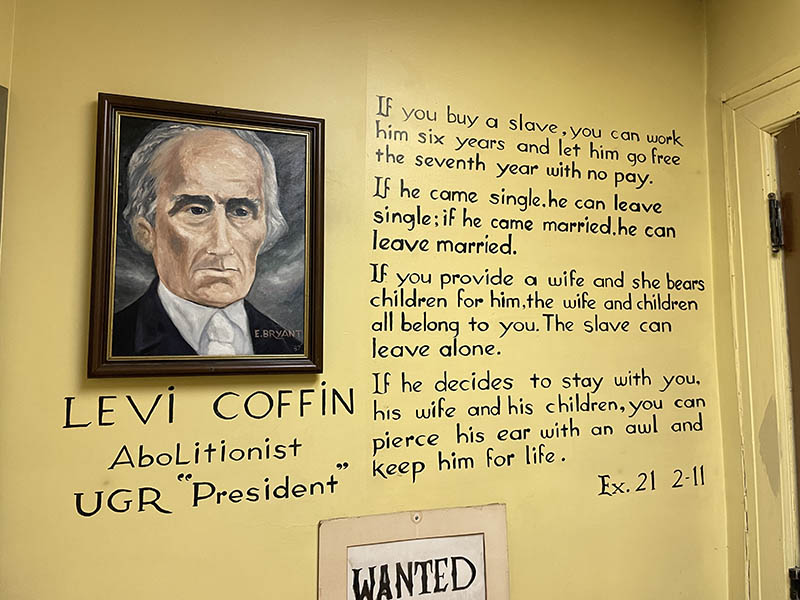 E. BRYANT
LEVI COFFIN
AboLitionist
UGR "President"
If you buy a slave, you can work
him six years and let him go free
the seventh year with no pay.
If he came single, he can leave
single; if he came married, he can
leave married.
If you provide a wife and she bears
children for him, the wife and children
all belong to you. The slave can
leave alone.
If he decides to stay with you,
his wife and his children, you can
pierce his ear with an awl and
keep him for life.
Ex. 21 2-11
WANTED